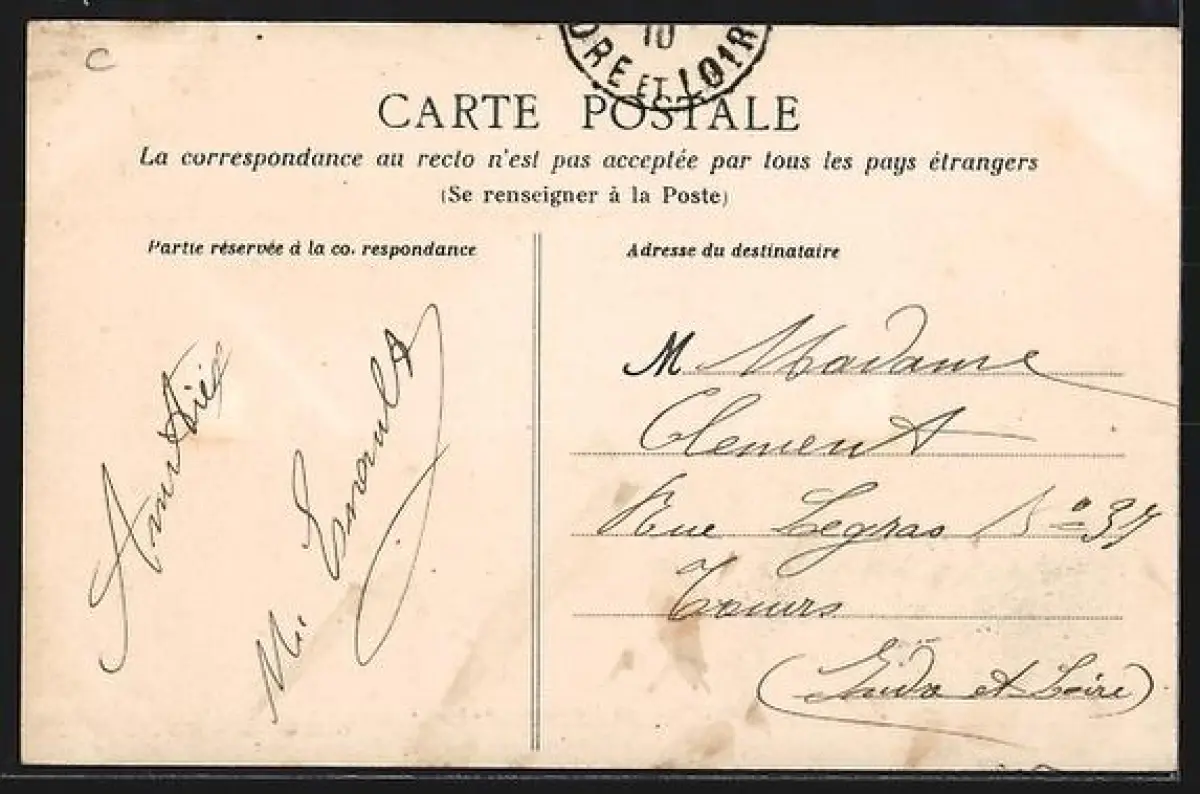 C
10
DRE ET LOIR
CARTE POSTALE
La correspondance au recto n'est pas acceptée par tous les pays étrangers
(Se renseigner à la Poste)
Partie réservée à la co. respondance
Amitiés
M. Enault
Adresse du destinataire
M Madame
Clement
Rue Legras No 37
Tours
(Indre et Loire)